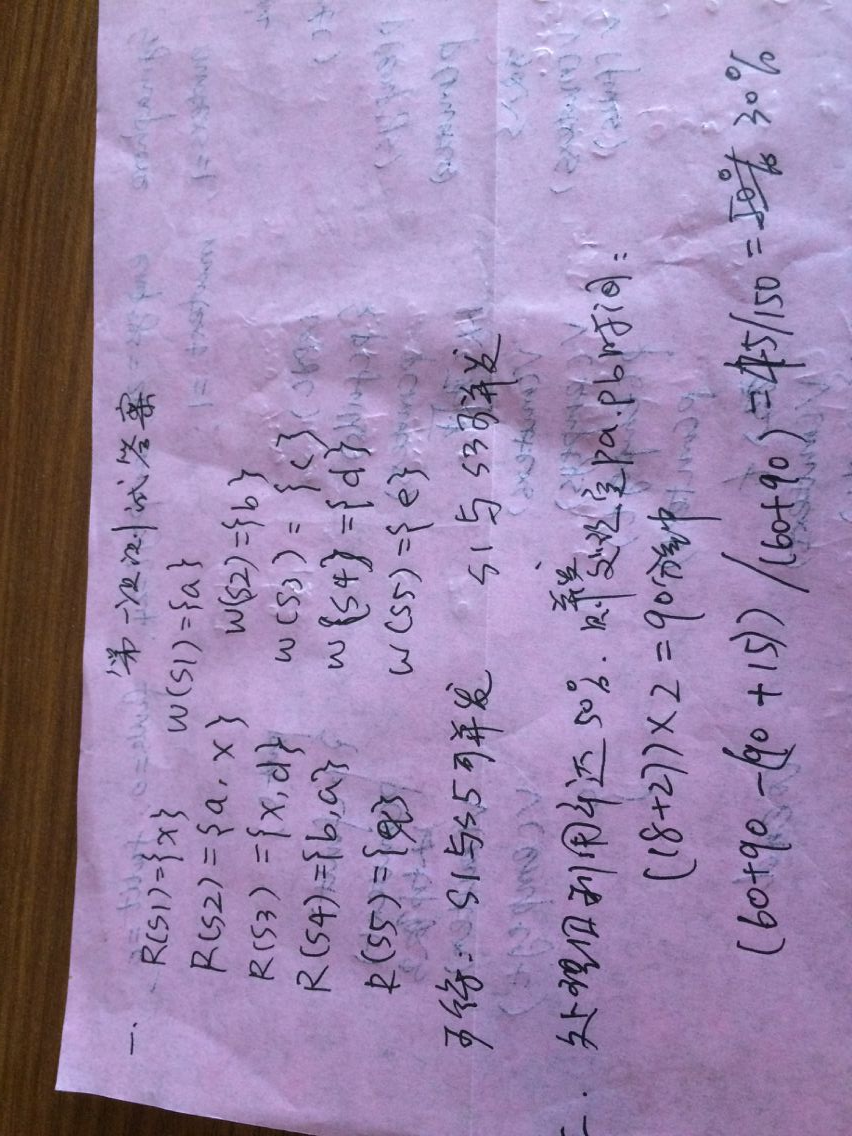 第一次测试答案
一. R(S1)={x} W(S1)={a}
R(S2)={a,x} W(S2)={b}
R(S3)={x,d} W(S3)={c}
R(S4)={b,a} W{S4}={d}
R(S5)={} W(S5)={e}
S1与S5可并发 S1与S3可并发
二. 处理机利用率达50%. 则 pa.pb时间:
(18+27)×2=90分钟
(60+90-(90+15))/(60+90)=45/150=50% 30%